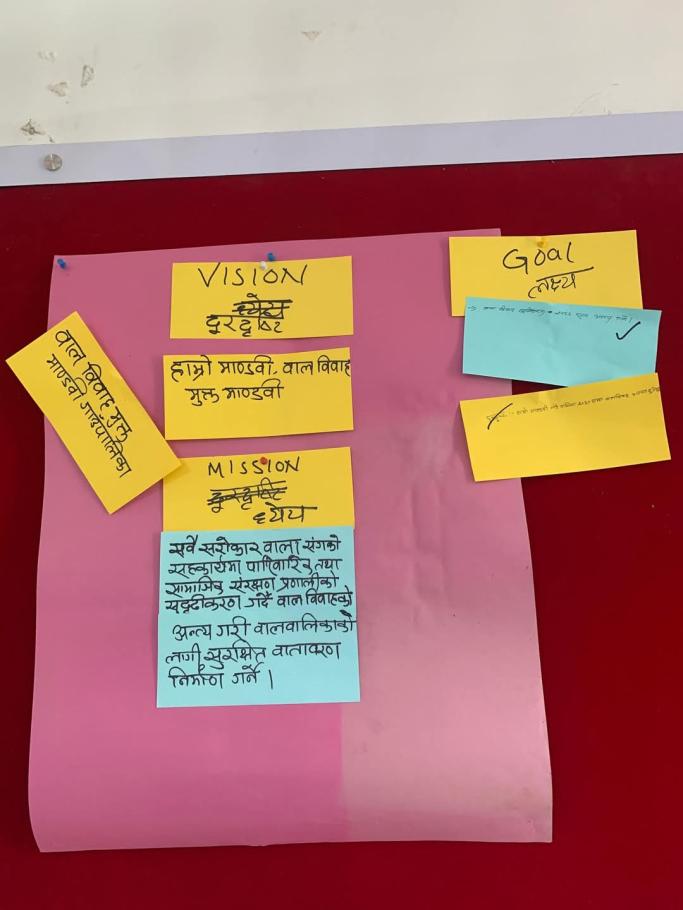 VISION
दुरदृष्टि
हाम्रो माण्डवी, वाल विवाह
मुक्त माण्डवी
वाल विवाह मुक्त
माण्डवी गाउँपालिका
MISSION
ध्येय
सवै सरोकार वाला संगको
सहकार्यमा पारिवारिक तथा
सामाजिक संरक्षण प्रणालीको
सुदृढीकरण गर्दै वाल विवाहको
अन्त्य गरी वालवालिकाको
लागी सुरक्षित वातावरण
निर्माण गर्ने ।
Goal
लक्ष्य